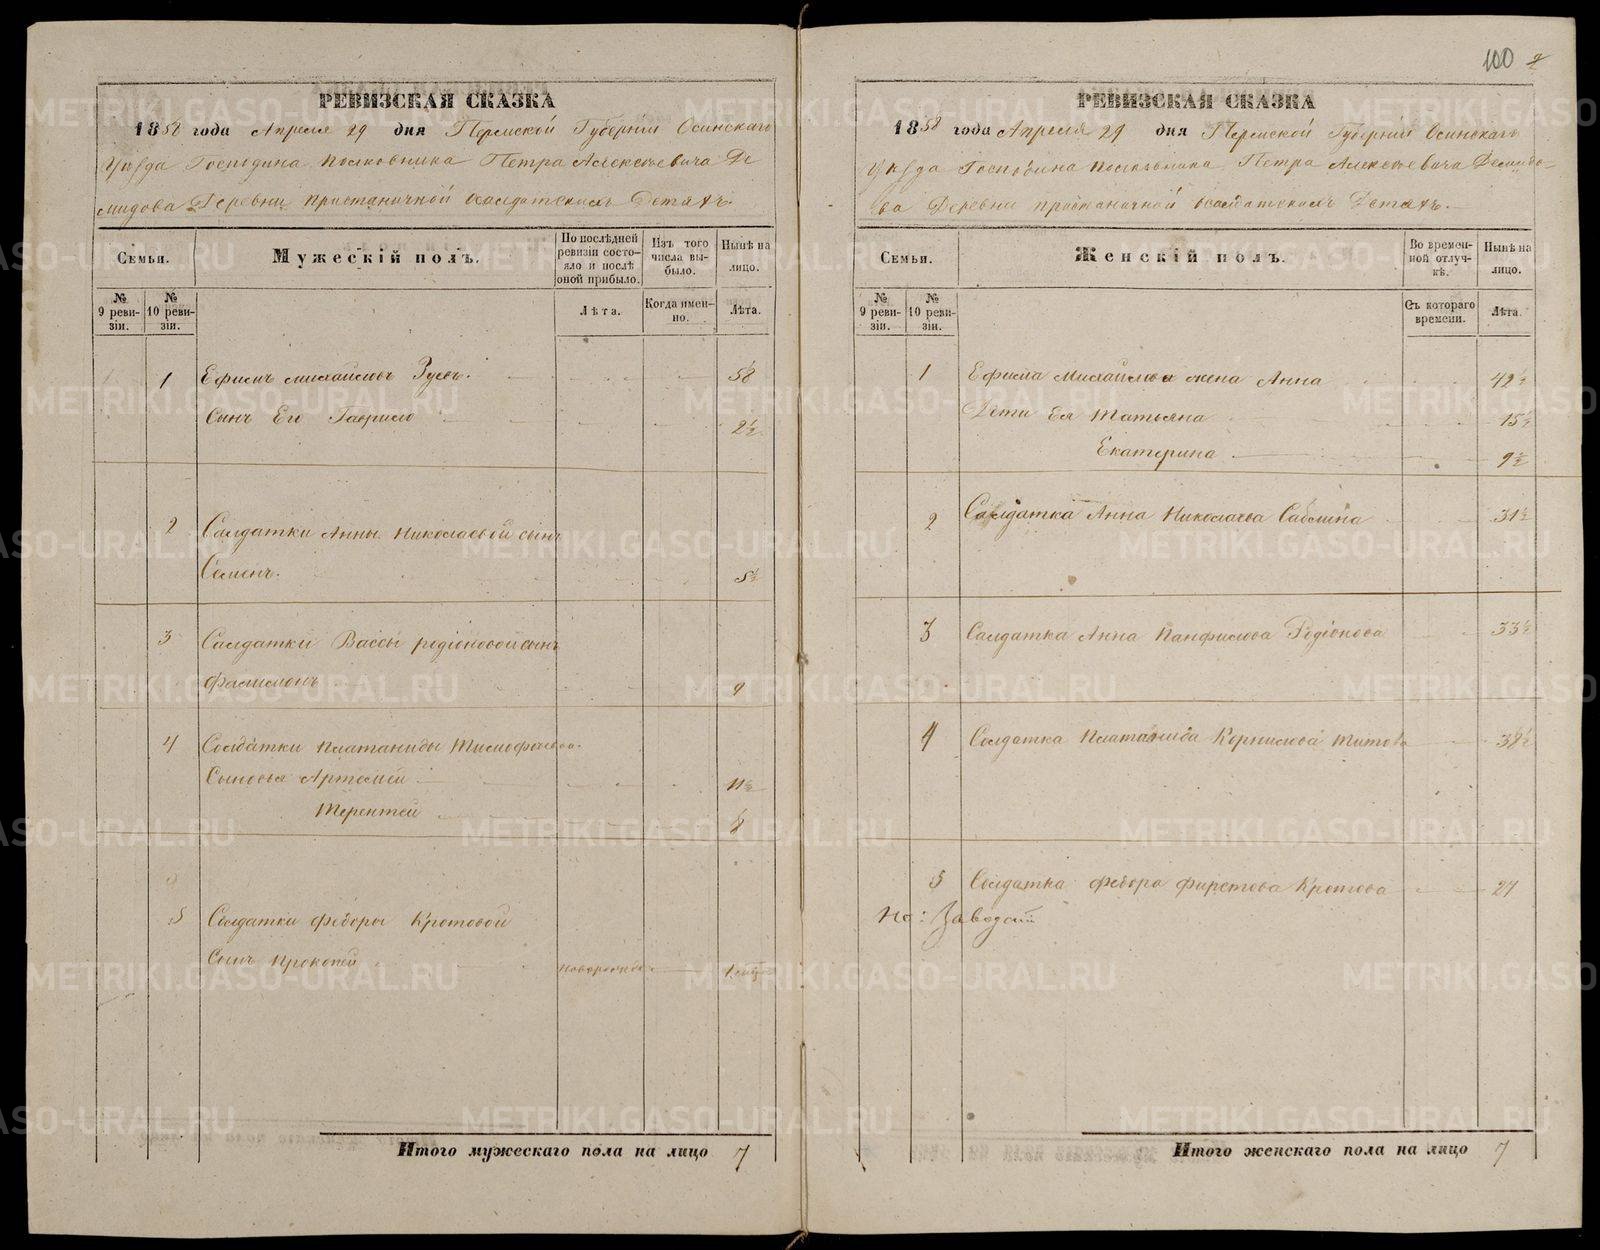 РЕВИЗСКАЯ СКАЗКА
1858 года Апреля 29 дня Пермской Губерніи Осинскаго
Уѣзда Господина Полковника Петра Алексѣевича Де
мидова Деревни Пристаничной о салдатскихъ Дѣтяхъ.
Семьи.
Мужескій полъ.
По послѣдней ревизіи состояло и послѣ оной прибыло.
Изъ того числа выбыло.
Нынѣ на лицо.
№ 9 ревизіи.
№ 10 ревизіи.
Лѣта.
Когда именно.
Лѣта.
1 Ефимъ Михайловъ Зуевъ. 58
Сынъ Его Гаврило 2½
2 Салдатки Анны Николаевой сынъ
Семенъ. 5½
3 Салдатки Вассы родіоновой сынъ
Филимонъ 9
4 Солдатки Платаниды Тимофѣевой
Сыновья Артемий 11½
Терентей ½
5 Солдатки Федоры Кротовой
Сынъ Прокопей новорожден
Итого мужескаго пола на лицо 7
100
РЕВИЗСКАЯ СКАЗКА
1858 года Апреля 29 дня Пермской Губерніи Осинскаго
Уѣзда Господина Полковника Петра Алексѣевича Демидо-
ва Деревни пристаничной о салдатскихъ Дѣтяхъ.
Семьи.
Женскій полъ.
Во временной отлучкѣ.
Нынѣ на лицо.
№ 9 ревизіи.
№ 10 ревизіи.
Съ котораго времени.
Лѣта.
1 Ефима Михайлова жена Анна 42½
Дѣти Ея Татьяна 15½
Екатерина 9½
2 Салдатка Анна Николаева Саблина 31½
3 Салдатка Анна Панфилова Родіонова 33½
4 Солдатка Платанида Корнилова Титова 38½
5 Солдатка Федора Фирстова Кротова 27
Но: Заводскій
Итого женскаго пола на лицо 7
METRIKI.GASO-URAL.RU